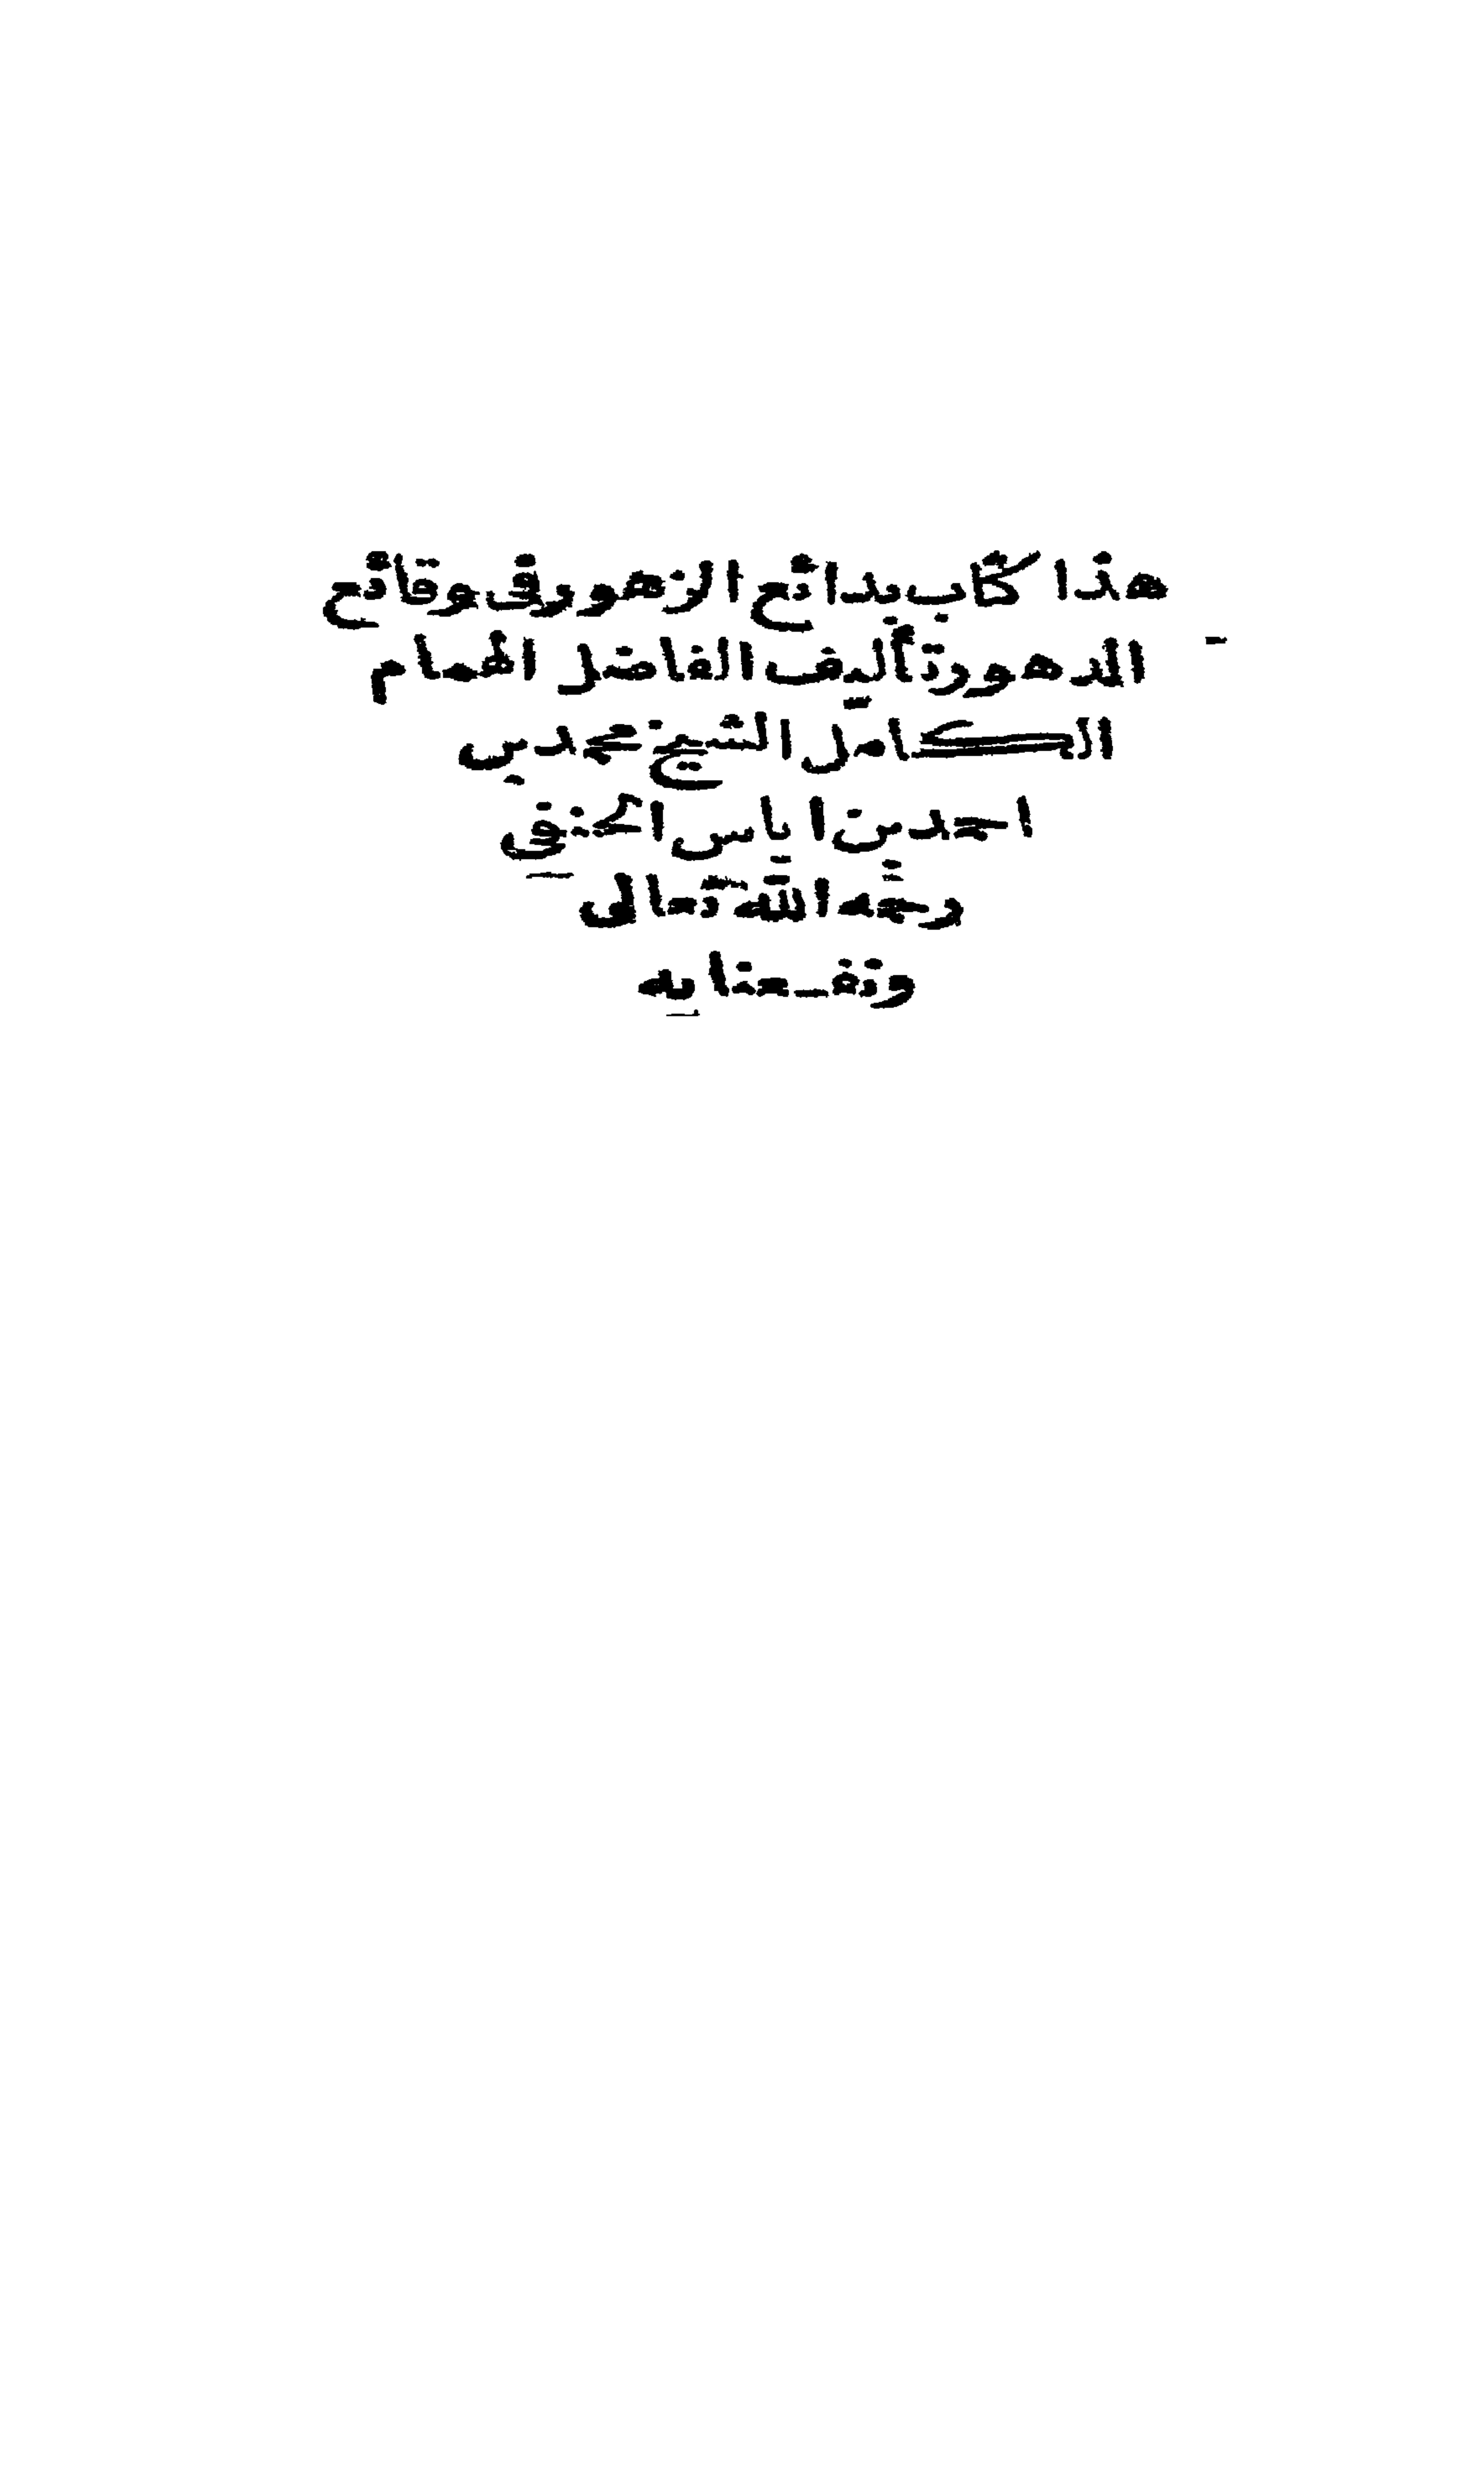 هذا كتاب بدائع الزهور في وقائع
الدهور تأليف الفاضل الهمام
الكامل الشيخ محمد بن
احمد بن اياس الحنفي
رحمه الله تعالى
ونفعنا به